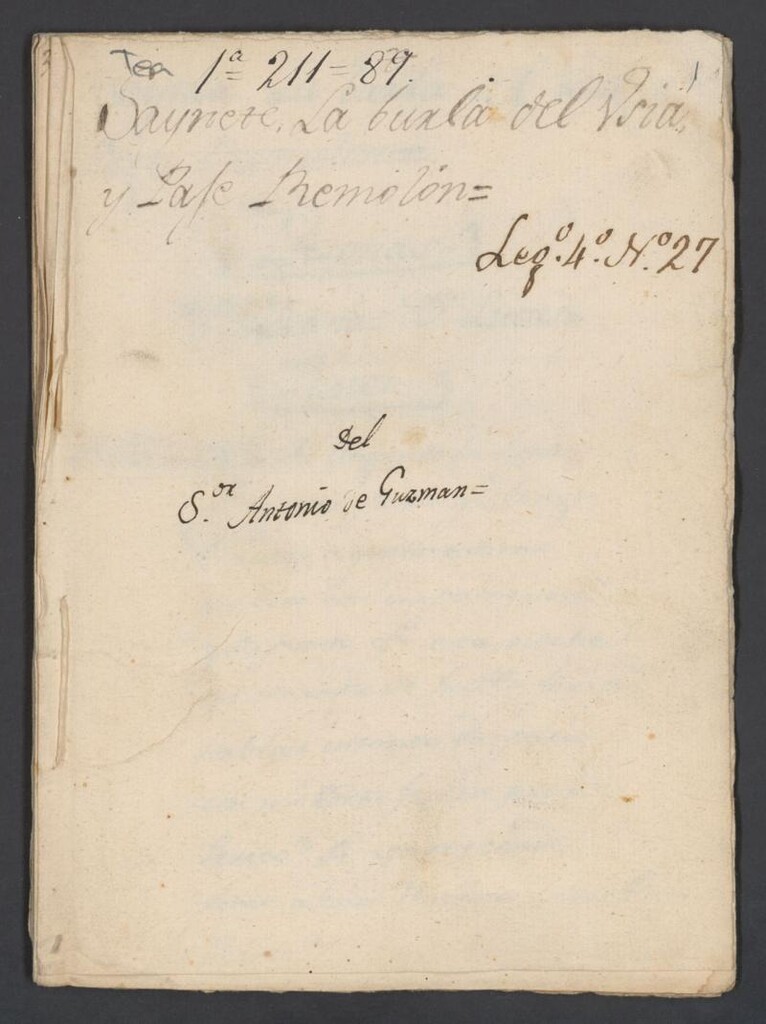 Tea 1ª=211=89.
Saynete. La burla del Vsia,
y Paje Remolón=
Leg.º 4.º N.º 27
Del
S.or Antonio de Guzman=